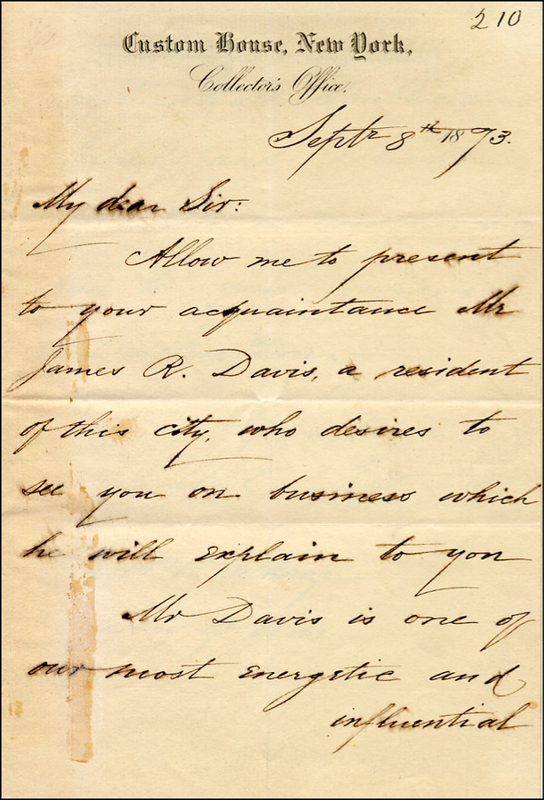 210
Custom House, New York,
Collector's Office.
Septr 8th 1873.
My dear Sir:
Allow me to present
to your acquaintance Mr
James R. Davis, a resident
of this city, who desires to
see you on business which
he will explain to you
Mr Davis is one of
our most energetic and
influential